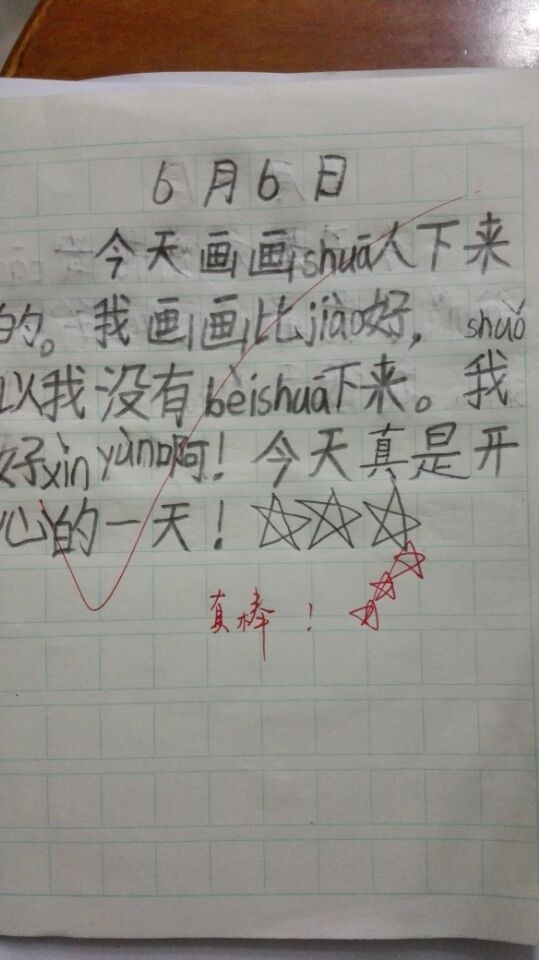 6月6日
今天画画shuā人下来
的。我画画比jiào好，shuǒ
以我没有bèishuā下来。我
好xìnyùn啊！今天真是开
心的一天！☆☆☆
真棒！☆☆☆